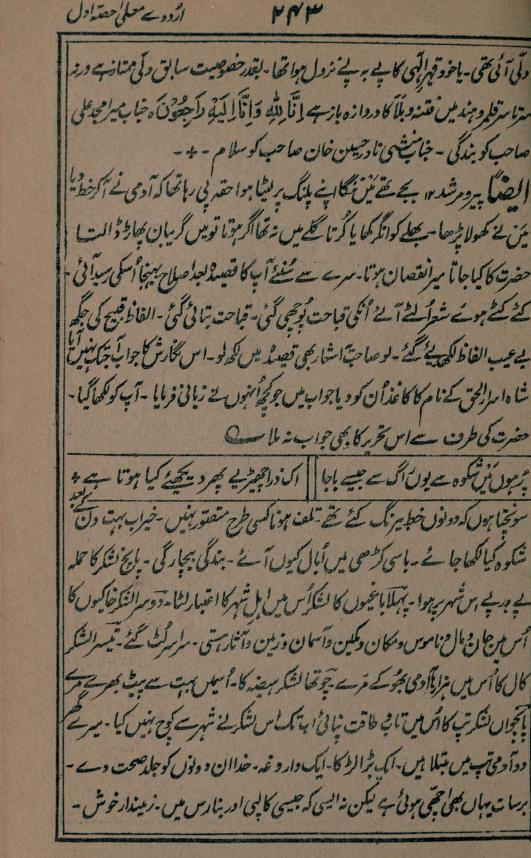 ۲۴۳ اردوے معلیٰ حصّہ اوّل
ولّی آئی تھی۔ یا خود قہر الٰہی کا پے بہ پے نزول ہوا تھا۔ بقدر خصوصیت سابق دلّی ممتاز ہے ورنہ
سرتاسر قلمرو ہند میں فتنہ و بلا کا دروازہ باز ہے اِنَّا لِلّٰہِ وَاِنَّا اِلَیْہِ رَاجِعُوْنَ ہ جناب میر امجد علی
صاحب کو بندگی۔ جناب منشی نادر حسین خان صاحب کو سلام ۔
ایضاً پیر و مرشد ۱۲ بجے تھے میں ننگا اپنے پلنگ پر لیٹا ہوا حقہ پی رہا تھا کہ آدمی نے آکر خط دیا
میں نے کھولا پڑھا۔ بھلے کو انگرکھا یا کُرتا گلے میں نہ تھا اگر ہوتا تو میں گریبان پھاڑ ڈالتا
حضرت کا کیا جاتا میرا نقصان ہوتا۔ سرے سے سُنئے آپ کا قصیدہ بعد اصلاح بھیجا اُسکی رسید آئی۔
کئے کٹے ہوئے شعر اُلٹے آئے اُنکی قباحت پوچھی گئی۔ قباحت بتائی گئی۔ الفاظ قبیح کی جگہ
بے عیب الفاظ لکھ دیے گئے۔ لو صاحب یہ اشعار بھی قصیدہ میں لکھ لو۔ اس نگارش کا جواب آج تک نہیں آیا
شاہ اسرار الحق کے نام کا کاغذ اُن کو دیا جواب میں جو کچھ اُنہوں نے زبانی فرمایا۔ آپ کو لکھا گیا۔
حضرت کی طرف سے اس تحریر کا بھی جواب نہ ملا
پُر ہوں میں شکوہ سے یوں راگ سے جیسے باجا اک ذرا چھیڑیے پھر دیکھئے کیا ہوتا ہے
سونچتا ہوں کہ دونوں خط بیرنگ گئے تھے۔ تلف ہونا کسی طرح متصور نہیں۔ خیر اب بہت دن کے بعد
شکوہ کیا لکھا جائے۔ باسی کڑھی میں اُبال کیوں آئے۔ بندگی بیچارگی۔ پانچ لشکر کا حملہ
پے در پے اس شہر پر ہوا۔ پہلا باغیوں کا لشکر اُس میں اہل شہر کا اعتبار لٹا۔ دوسرا لشکر خاکیوں کا
اُس میں جان و مال و ناموس و مکان و مکین و آسمان و زمین و آثار ہستی۔ سراسر لُٹ گئے۔ تیسرا لشکر
کال کا اُس میں ہزارہا آدمی بھوکے مرے۔ چوتھا لشکر ہیضہ کا۔ اُسمیں بہت سے پیٹ بھرے مرے
پانچواں لشکر تپ کا اُس میں تاب و طاقت نہ پائی اب تک اس لشکر نے شہر سے کوچ نہیں کیا۔ میرے گھر
دو آدمی تپ میں مبتلا ہیں۔ ایک بڑا لڑکا۔ ایک داروغہ۔ خدا ان دونوں کو جلد صحت دے۔
برسات یہاں بھی اچھی ہوئی ہے لیکن نہ ایسی کہ جیسی کالپی اور بنارس میں۔ زمیندار خوش۔